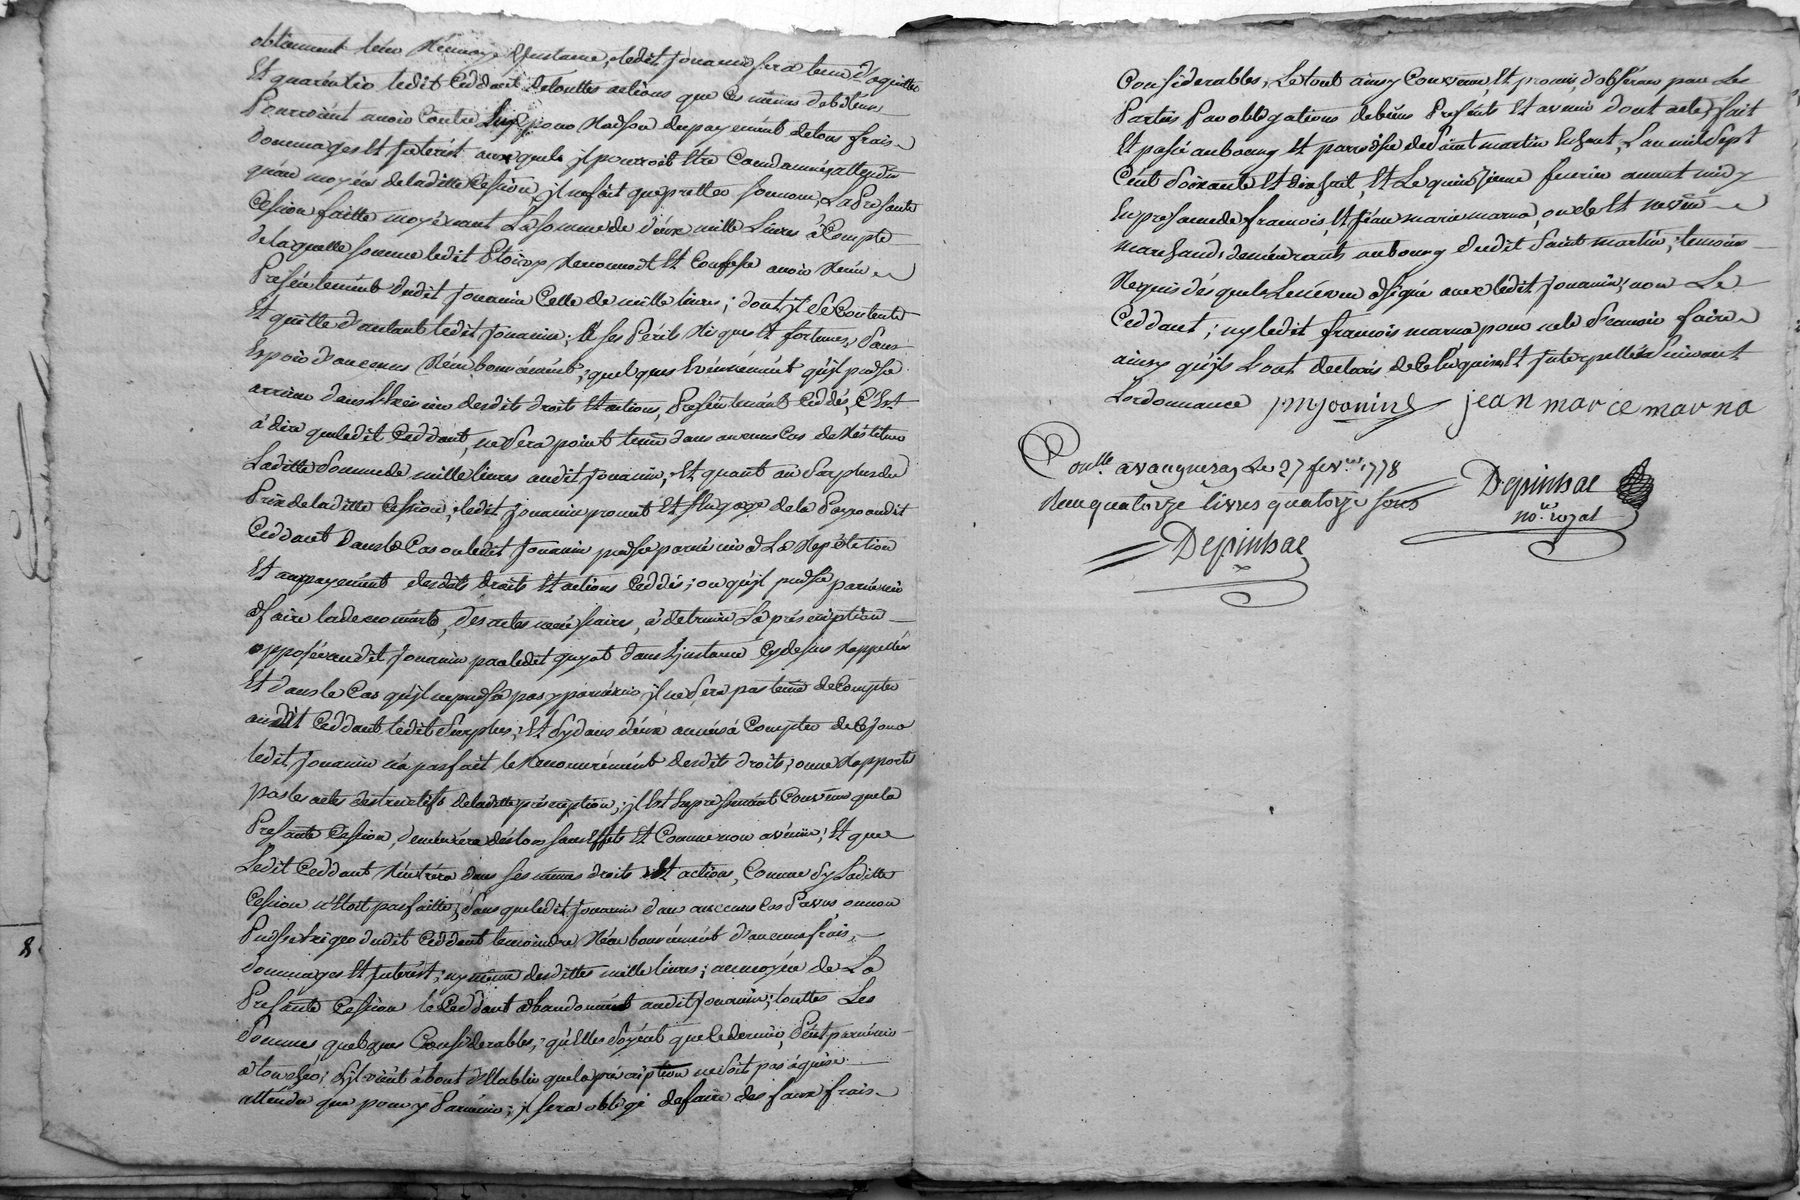 obtiennent leur Renvoy d'Instance, ledit Jouanin sera tenu d'aquitter
Et guarentir ledit Ceddant detouttes actions que Ces mêmes debiteurs
Pourroient avoir Contre luy pour Raison dupayement detous frais
dommages Et Interest auxquels il pourroit Etre Condamné attendu
qu'au moyen deladitte Cession, il nefait que pretter son nom, La Presante
Cession faitte moyénant La somme de deux mille Livres à Compte
de laquelle somme ledit Reconnoit Et Confesse avoir Receu
Presentement dudit Jouanin Celle de mille livres; dont il se Contente
Et quitte d'autant ledit Jouanin; à ses Perils Risques Et fortunes, Sans
Espoir d'aucuns Remboursement, quelques Evénnement qu'il puisse
arriver dans desdits droits Et actions, Presentement Ceddés, C'Est
à dire que ledit Ceddant, ne Sera point tenu dans aucuns Cas de Restituer
Laditte Somme de mille livres audit Jouanin, Et quant au Surplus du
Prix deladitte Cession, ledit Jouanin promet Et s'Engage de la Payer audit
Ceddant Dans le Cas ou ledit Jouanin puisse parvenir à La Repetition
Et au payement desdits droits Et actions Ceddés; ou qu'il puisse parvenir
à faire des actes necessaires, à detruire La préscription
opposée audit Jouanin par ledit guyot dans L'instance Cy dessus Rappellée
Et dans le Cas qu'il ne puisse pas y parvenir il ne Sera pas tenu de Compter
audit Ceddant ledit Surplus, Et Sy dans deux années à Compter de Ce jour
ledit Jouanin n'a pas fait le Recouvrement desdits droits, ou ne Rapporte
pas les actes destructifs deladitte préscription, il Est Expressement Convenu que la
Presante Cession, demeurera deslors sans Effets Et Comme non avenüe; Et que
Ledit Ceddant Rentrera dans ses mêmes droits Et actions, Comme Sy Laditte
Cession n'Etoit pas faitte, Sans que ledit Jouanin dans aucuns Cas Pavus ou non
Puisse Exiger dudit Ceddant le moindre Remboursement d'aucuns frais,
dommages Et Interest, ny même desdittes mille livres; au moyen de La
Presante Cession le Ceddant abandonnent audit Jouanin, touttes Les
Sommes quelques Considerables, qu'Elles Soyent que le dernier, Peut parvenir
à toucher; S'il vient à bout d'Etablir que la préscription ne Soit pas aquise
attendu que pour y Parvenir; il sera obligé de faire des faux frais
Considerables, Le tout ainsy Convenu, Et promis, d'observer par Les
Parties Par obligations de biens Presents Et avenir dont acte, fait
Et passé au bourg Et paroisse de Saint martin L'an mil Sept
Cent Soixante Et dix huit, Et Le quinzieme fevrier avant midy
En presance de francois, Et Jean marie marna, oncle Et neveu
marchands, demeurants au bourg dudit Saint martin, temoins
Requis desquels Le neveu à Signé avec ledit Jouanin, non Le
Ceddant, ny ledit francois marna pour ne le Scavoir faire
ainsy qu'ils L'ont declarés de Ce Enquis Et Interpellés Suivant
L'ordonnance jean marie marna
Conllé. a Le 27 fevr. 1778
Reçu quatorze livres quatorze sous
Depinhac
nore. royal
Depinhac
8